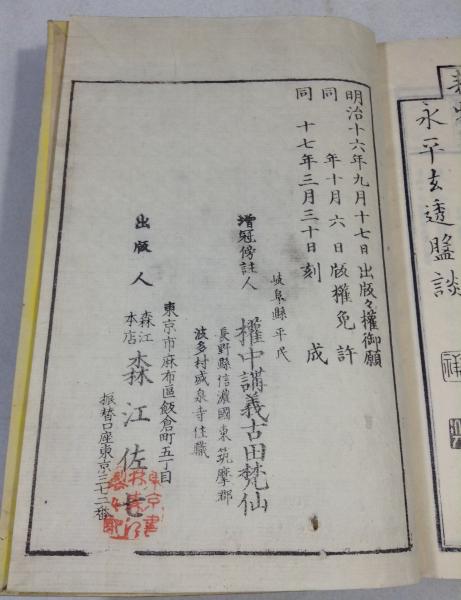 永平玄透盤談
明治十六年九月十七日出版々權御願
同　年十月六日版權免許
同　十七年三月三十日刻成
岐阜縣平民
增冠傍註人　權中講義古田梵仙
長野縣信濃國東筑摩郡
波多村盛泉寺住職
東京市麻布區飯倉町五丁目
出版人　森江本店　森江佐七
振替口座東京三七二番